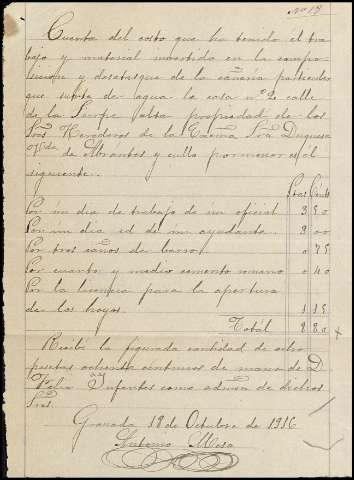 Nº 17
Cuenta del costo que ha tenido el tra
bajo y material invertido en la compo-
sicion y desatasque de la cañeria particular
que surte de agua la casa nº 2 calle
de la Sierpe alta propiedad de los
Sres Herederos de la Excma Sra Duquesa
Vda de Abrantes y cullo pormenor es el
siguiente.
Ptas Cents
Por un dia de trabajo de un oficial 3 50
Por un dia id de un ayudante 2 00
Por tres caños de barro 0 75
Por cuarto y medio cemento romano 0 40
Por la licencia para la apertura
de los hoyos 1 15
Total 8 80
Recibí la figurada cantidad de ocho
pesetas ochenta céntimos de mano de D.
Felix Infantes como admor de dichos
Sres.
Granada 18 de Octubre de 1916
Antonio Mesa